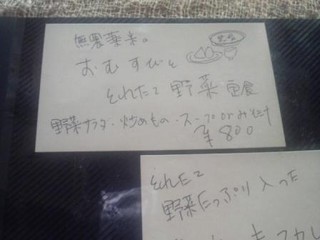 無農薬米の
おむすびと
とれたて野菜定食
野菜サラダ・炒めもの・スープorみそ汁
¥800
とれたて
野菜たっぷり入った